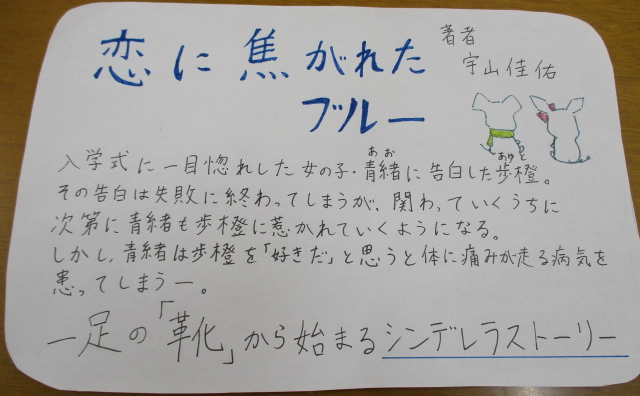 著者
宇山佳佑
恋に焦がれた
ブルー
入学式に一目惚れした女の子・青緒に告白した歩橙。
あお
あゆと
その告白は失敗に終わってしまうが、関わっていくうちに
次第に青緒も歩橙に惹かれていくようになる。
しかし、青緒は歩橙を「好きだ」と思うと体に痛みが走る病気を
患ってしまうー。
一足の「革化」から始まるシンデレラストーリー